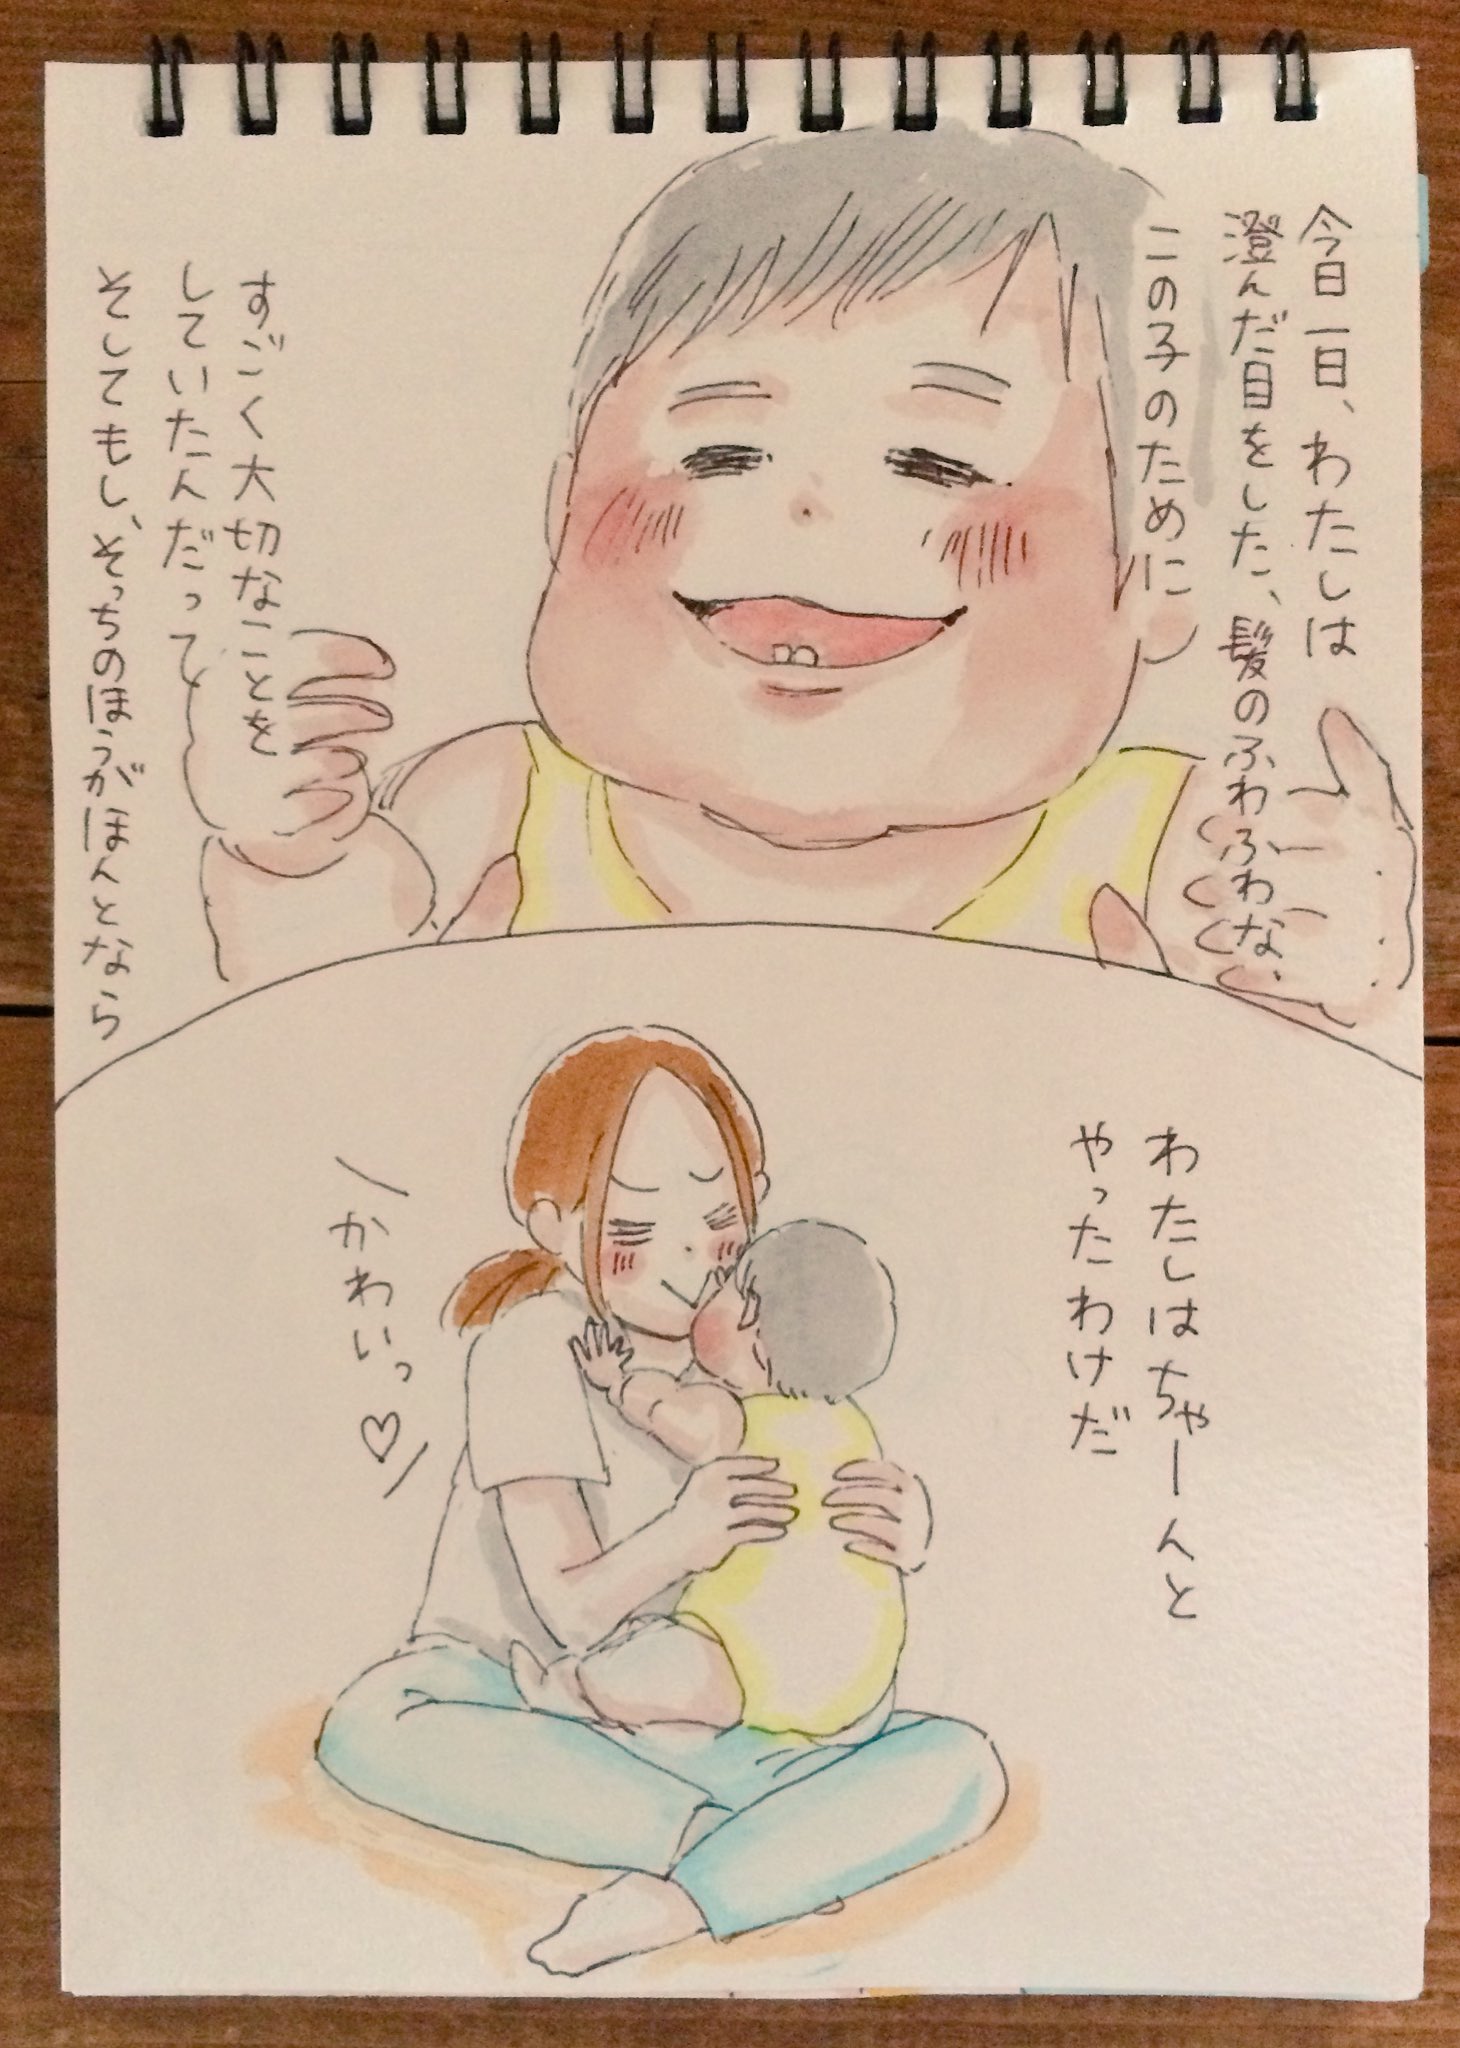 今日一日、わたしは
澄んだ目をした、髪のふわふわな、
この子のために
すごく大切なことを
していたんだって
そしてもし、そっちのほうがほんとなら
わたしはちゃーんと
やったわけだ
かわいっ♡